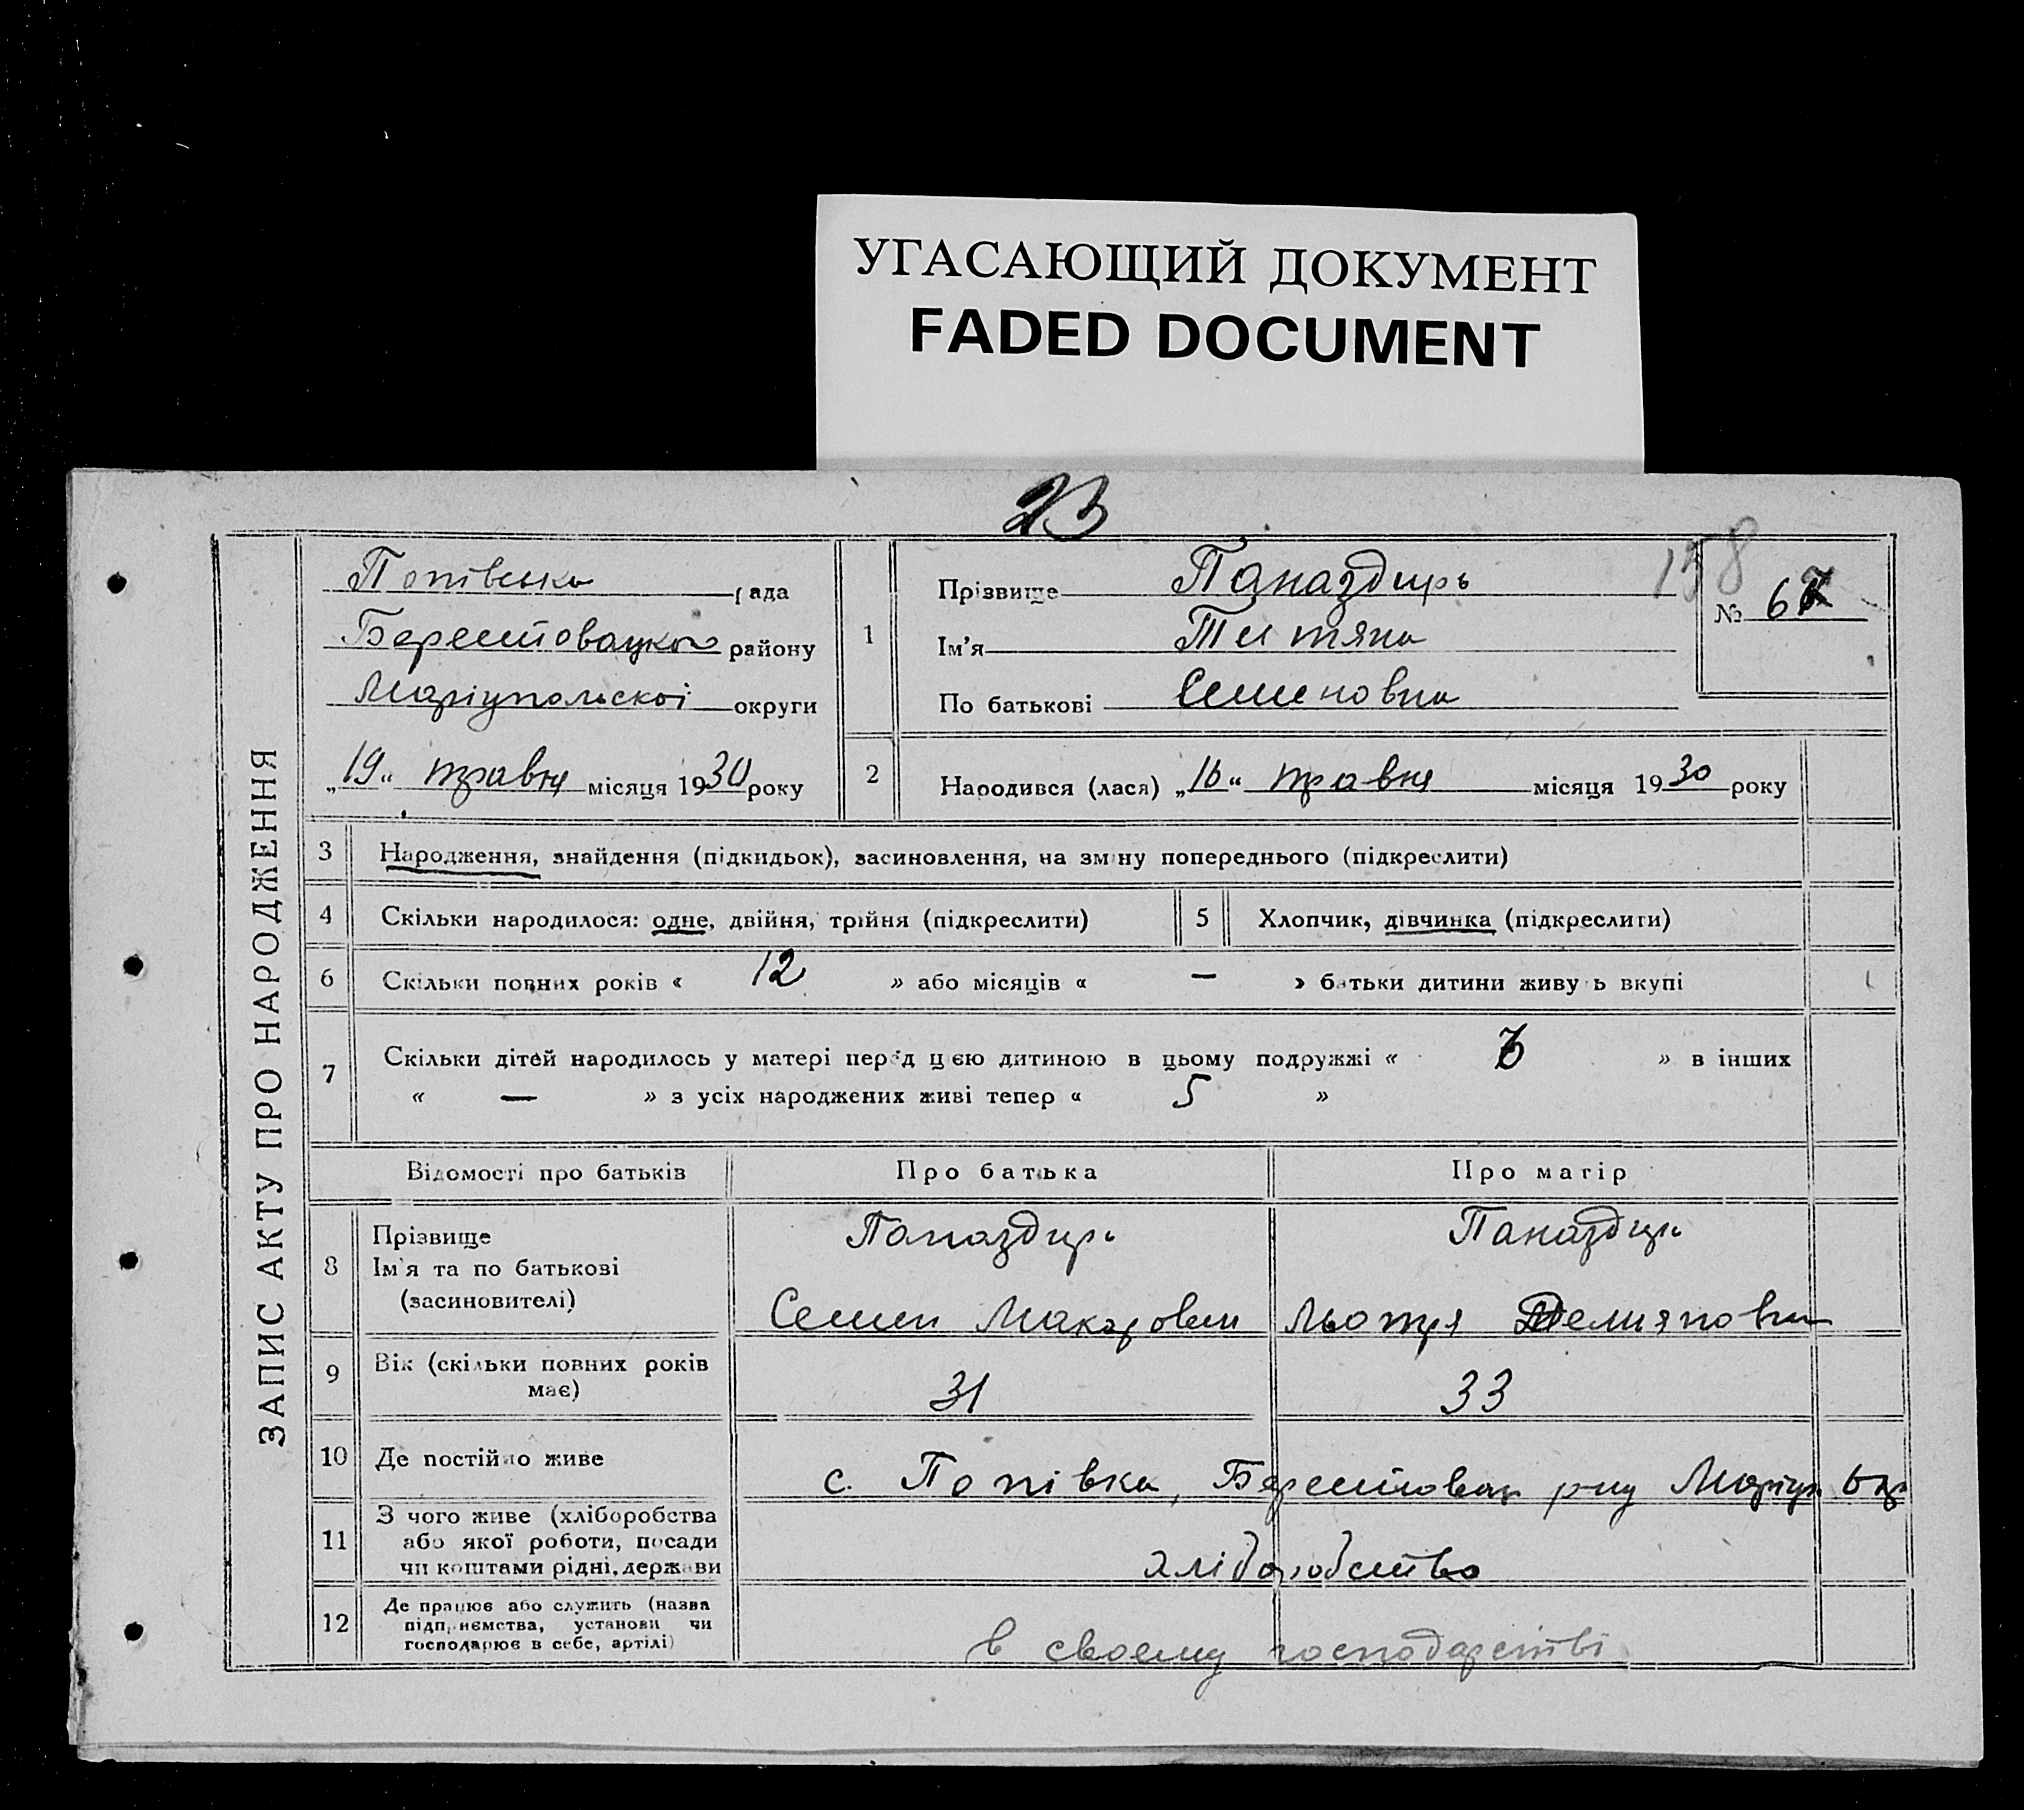 УГАСАЮЩИЙ ДОКУМЕНТ
FADED DOCUMENT
23
158
ЗАПИС АКТУ ПРО НАРОДЖЕННЯ
Попівська рада
Берестовацког району
Маріупольскоі округи
„19“ травня місяця 1930 року
1
Прізвище Паназдирь
Ім'я Титяна
По батькові Семеновна
№ 67
2 Народився (лася) „16“ травня місяця 1930 року
3 Народження, знайдення (підкидьок), засиновлення, на зміну попереднього (підкреслити)
4 Скільки народилося: одне, двійня, трійня (підкреслити)
5 Хлопчик, дівчинка (підкреслити)
6 Скільки повних років « 12 » або місяців « — » батьки дитини живуть вкупі
7 Скільки дітей народилось у матері перед цією дитиною в цьому подружжі « » в інших
« — » з усіх народжених живі тепер « 5 »
Відомості про батьків Про батька Про матір
8 Прізвище
Ім'я та по батькові
(засиновителі)
Паназдирь
Семен Макарович
Паназдирь
Мотря Демяновна
9 Вік (скільки повних років
має)
31 33
10 Де постійно живе с. Попівка, Берестовац р-ну Маріуп
11 З чого живе (хліборобства
або якої роботи, посади
чи коштами рідні, держави
хліборобство
12 Де працює або служить (назва
підприємства, установи чи
господарює в себе, артілі)
в своему господарстві